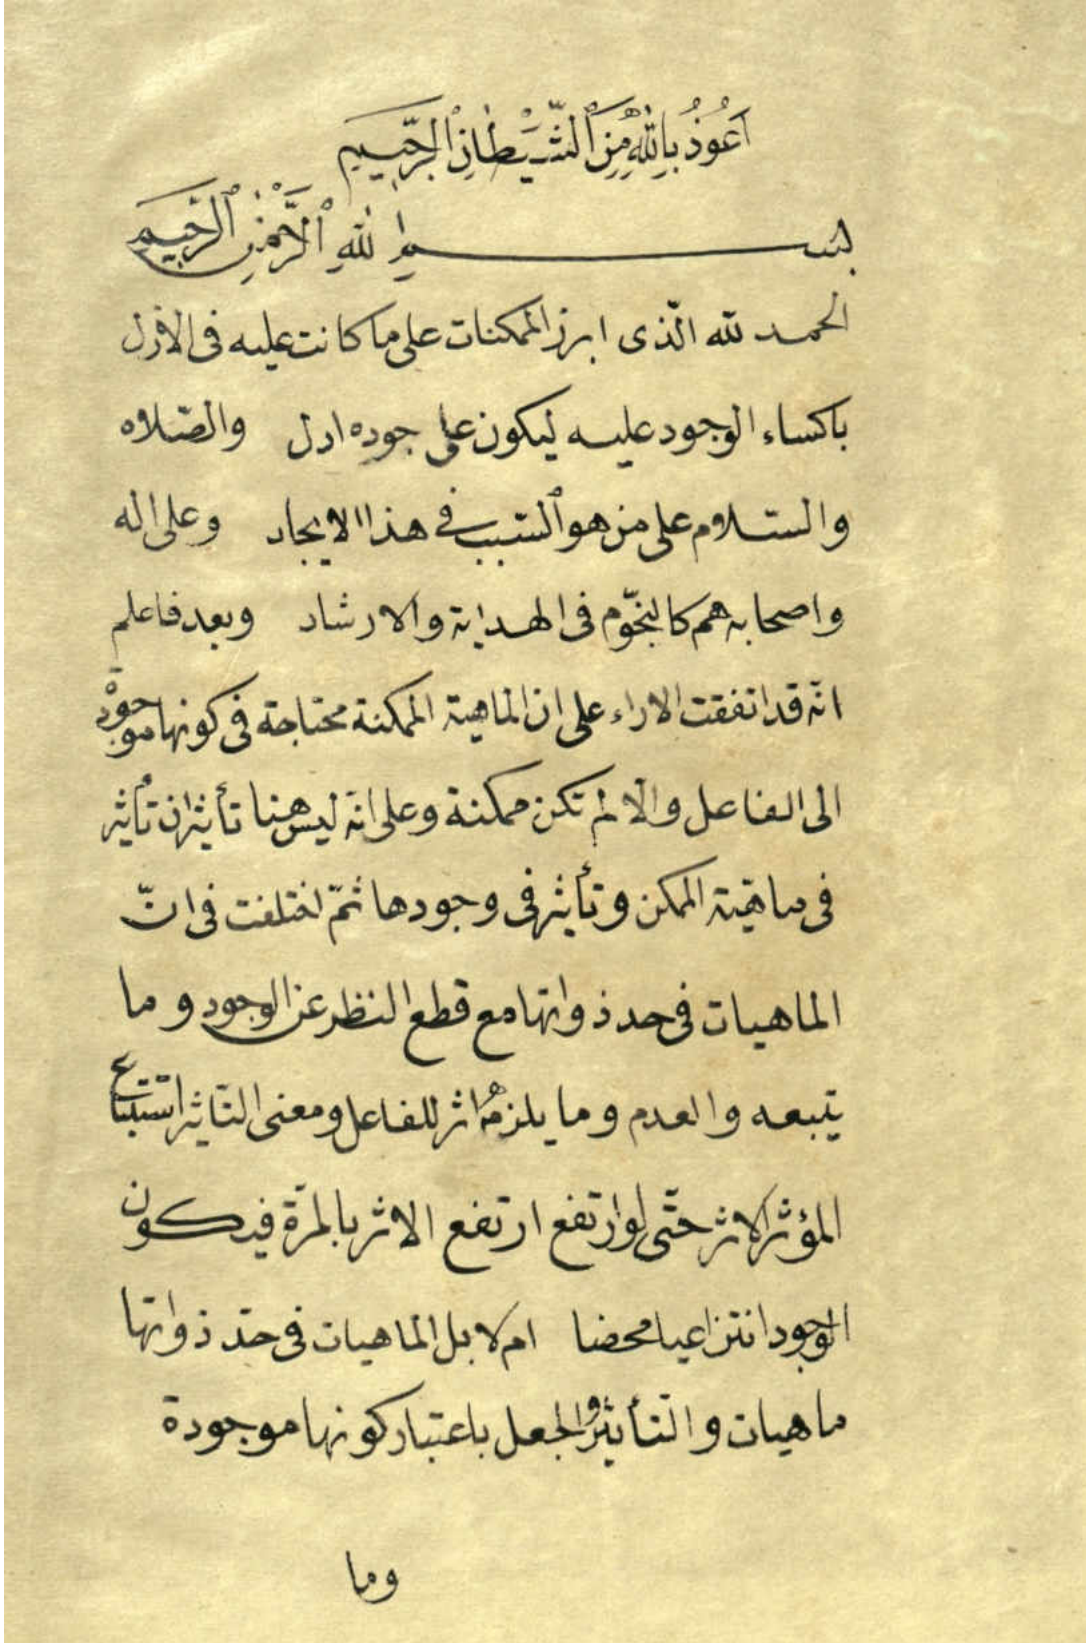 اَعُوذُ بِاللّٰهِ مِنَ ٱلشَّيْطَانِ ٱلرَّجِيمِ
بسم اللهِ ٱلرَّحْمٰنِ ٱلرَّحِيمِ
الحمد لله الّذى ابرز الممكنات على ما كانت عليه فى الازل
باكساء الوجود عليه ليكون على جوده ادل والصّلاه
والسّلام على من هو ٱلسّبب فى هذا الايجاد وعلى اله
واصحابه هم كالنجّوم فى الهداية والارشاد وبعد فاعلم
انّه قد اتفقت الاراء على ان الماهية الممكنة محتاجة فى كونها موجودة
الى الفاعل والّا لم تكن ممكنة وعلى انّه ليس هنا تأثيران تأثير
فى ماهيّة الممكن وتأثير فى وجودها ثمّ اختلفت فى انّ
الماهيات فى حد ذواتها مع قطع النظر عن الوجود وما
يتبعه والعدم وما يلزمهُ اثر للفاعل ومعنى التّاثير استتباع
المؤثر الاثر حتّى لو ارتفع ارتفع الاثر بالمرّة فيكون
الوجود انتزاعيا محضا ام لا بل الماهيات فى حدّ ذواتها
ماهيات والتأثير والجعل باعتبار كونها موجودة
وما